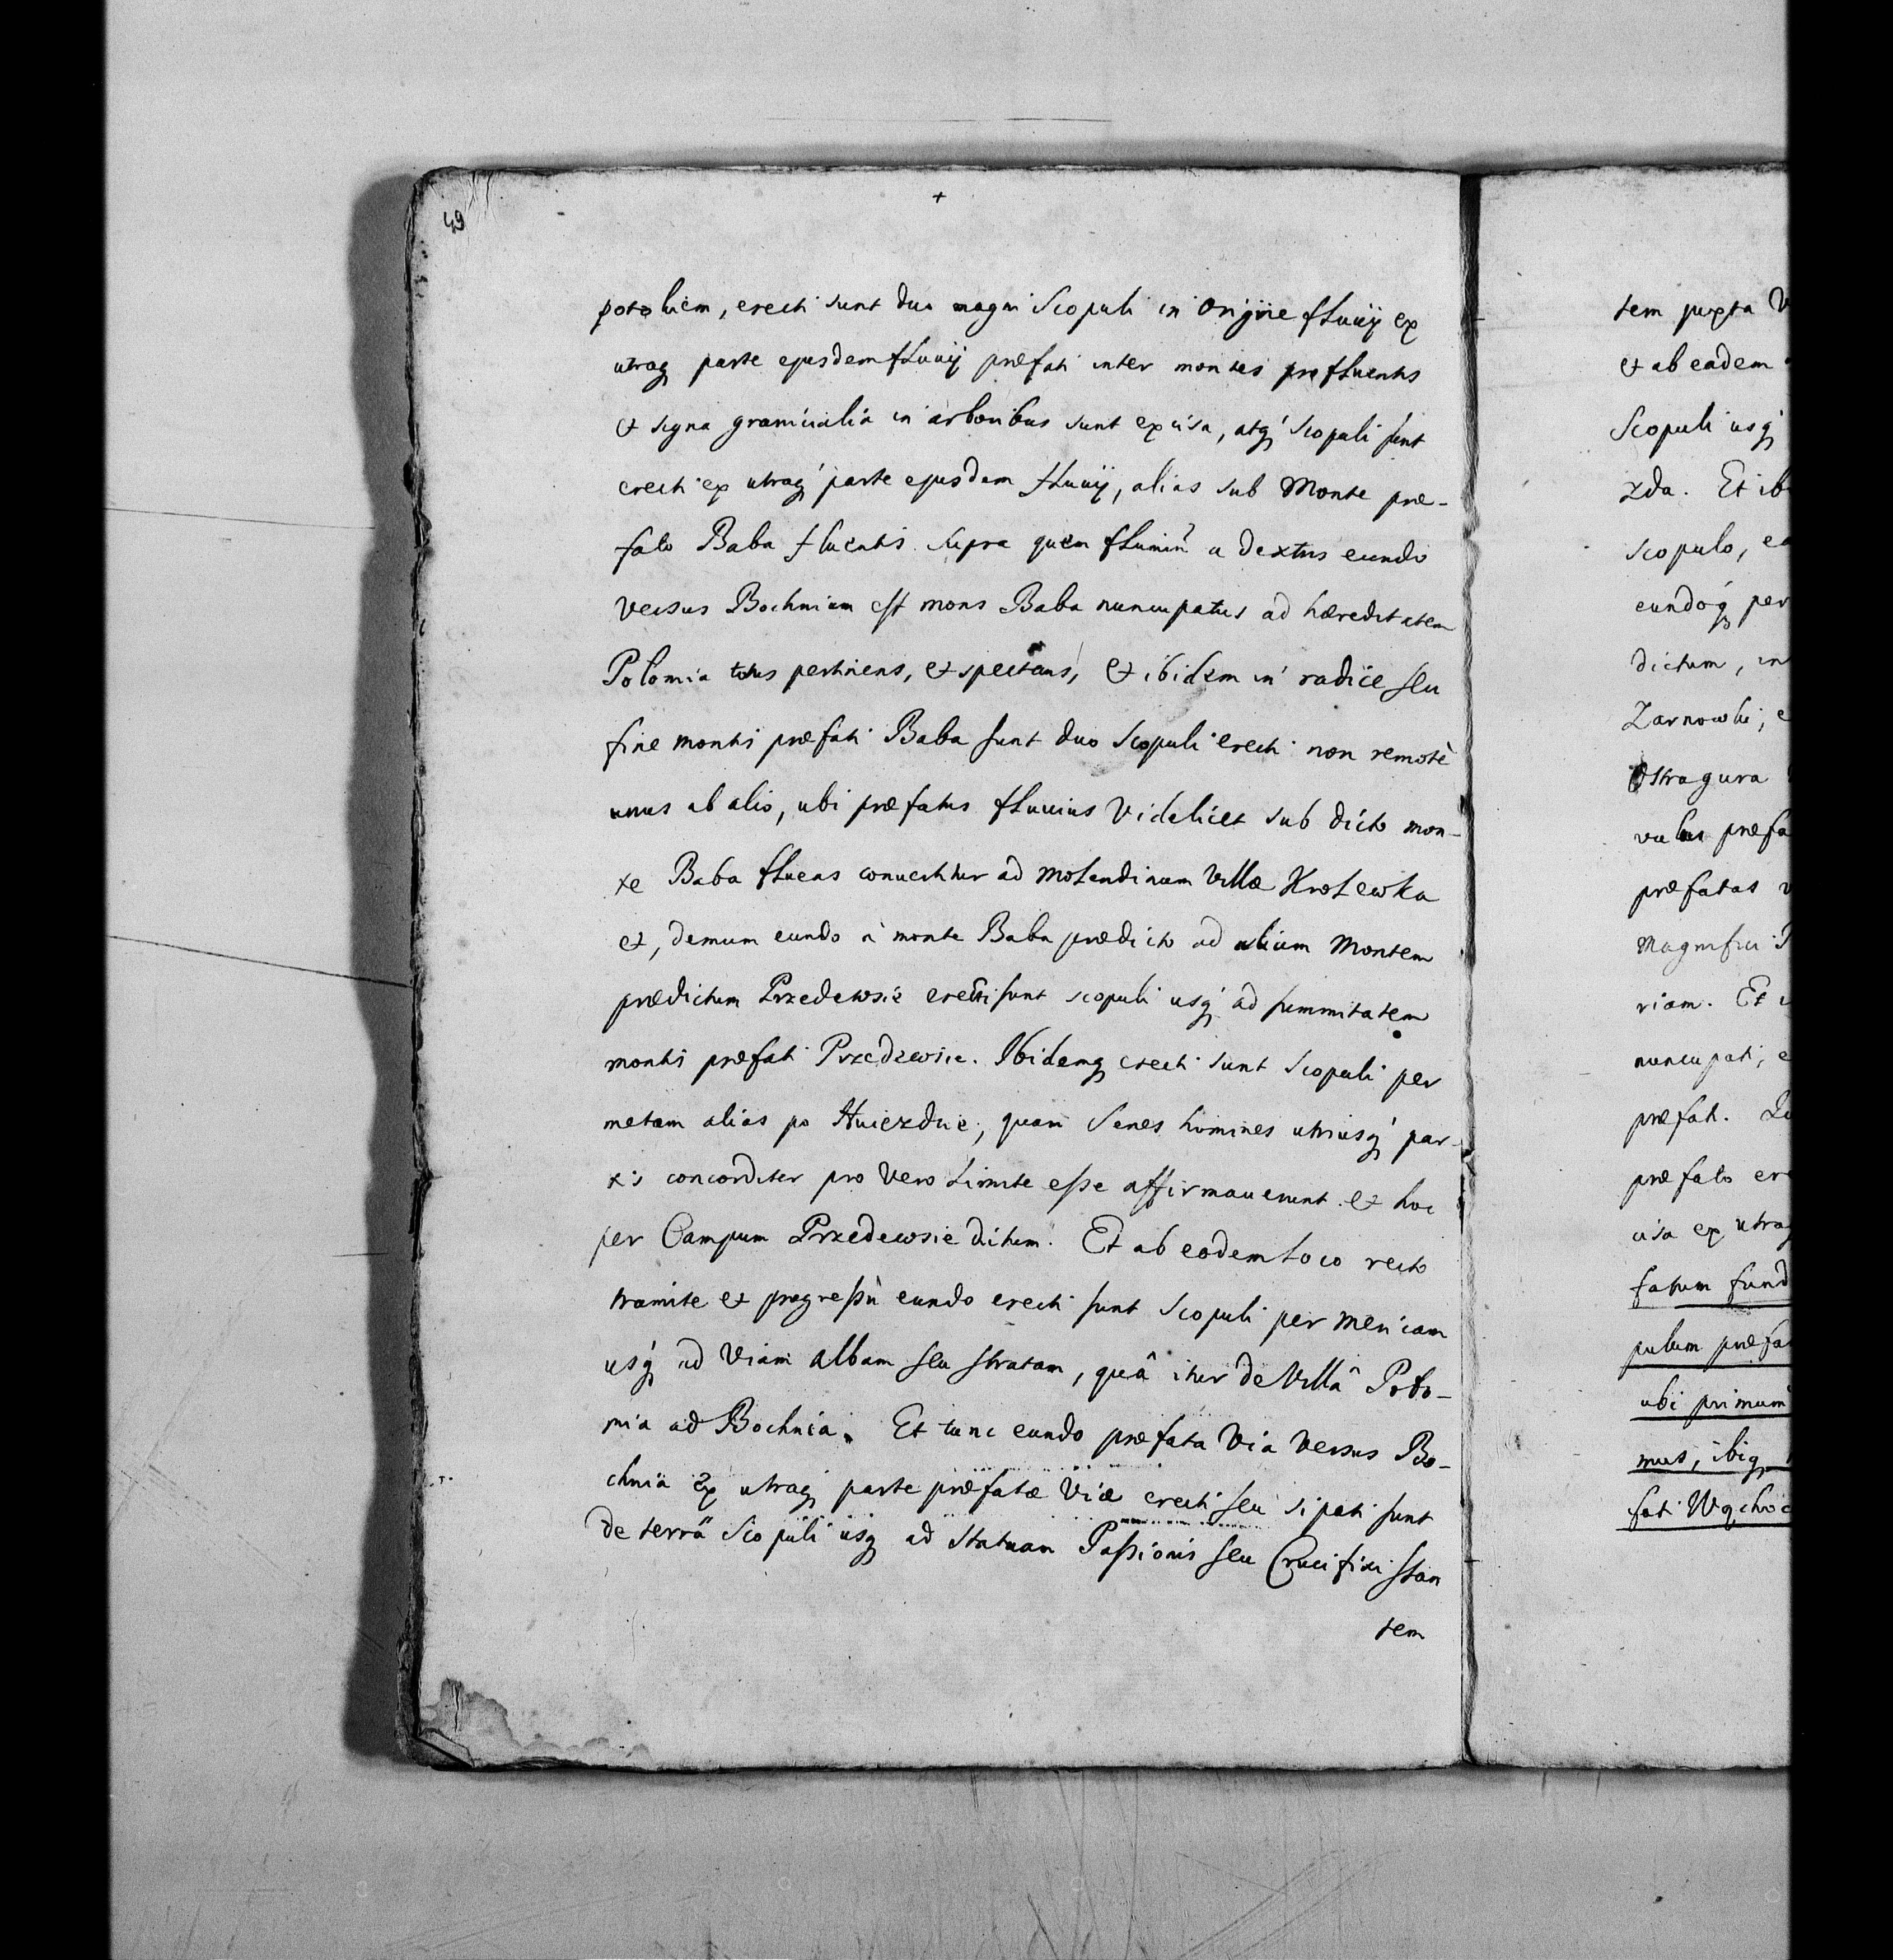 49
+
potokiem, erecti sunt duo magni Scopuli in origine fluvij ex
utraq parte ejusdem fluuij præfati inter montes profluentis
et signa granicialia in arboribus sunt excisa, atq́ scopuli sunt
erecti ex utraq́ parte ejusdem fluuij, alias sub Monte præ-
fato Baba fluentis supra quem a dextris eundo
versus Bochniam est mons Baba nuncupatus ad hæreditatem
Polomia totus pertinens, et spectans, et ibidem in radice seu
fine montis præfati Baba sunt duo Scopuli erecti non remotè
unus ab alio, ubi præfatus fluuius videlicet sub dicto mon-
te Baba fluens conuertitur ad Molendinum Villæ Krolewka
et, demum eundo a monte Baba prædicto ad alium Montem
prædictum Przedewsie erecti sunt scopuli usq́ ad summitatem
montis præfati Przedzewsie. Ibidemq erecti sunt Scopuli per
metam alias po Hniezdne, quam Senes homines utriusq́ par-
tis concorditer pro vero Limite esse affirmauerunt et hoc
per Campum Przedewsie dictum. Et ab eodem Loco recto
tramite et progressu eundo erecti sunt Scopuli per mericam
usq́ ad viam albam seu stratam, quâ itur de Villâ Polo-
mia ad Bochnia. Et tunc eundo præfata via versus Bo-
chnia Ex utraq́ parte præfatæ viæ erecti seu sipati sunt
de terrâ Scopuli usq ad statuam Passionis seu Crucifixi stan
tem
tem juxta V
et ab eadem
Scopuli usq́
zda. Et ib
scopulo, ea
eundoq́ per
dictum, in
Zarnowki, e
Ostragura
præfa
præfatas v
Magnifici
riam. Et
nuncupati, e
præfati.
præfato ere
cisa ex utraq
fatum fund
pulum præfa
ubi primum
mus, ibiq
fati Wąchoc